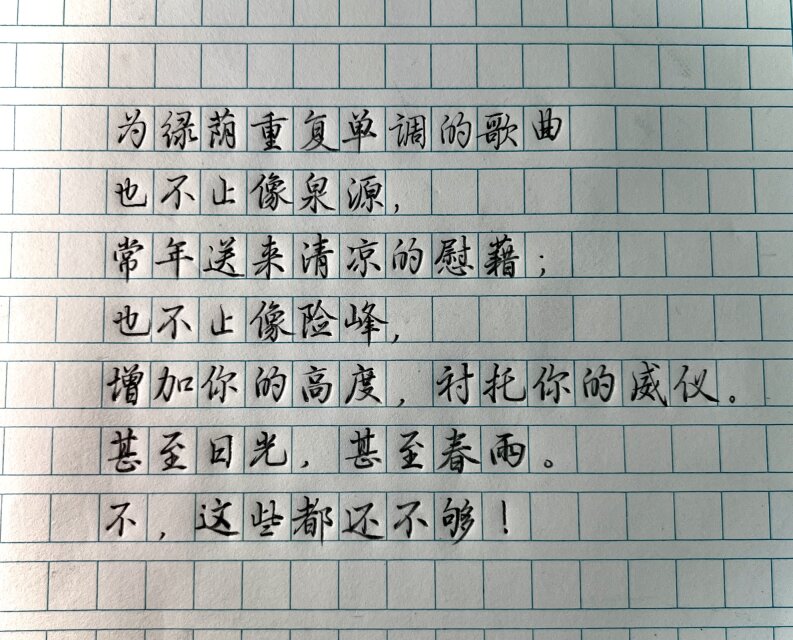 为绿荫重复单调的歌曲
也不止像泉源,
常年送来清凉的慰藉;
也不止像险峰,
增加你的高度,衬托你的威仪。
甚至日光,甚至春雨。
不,这些都还不够!